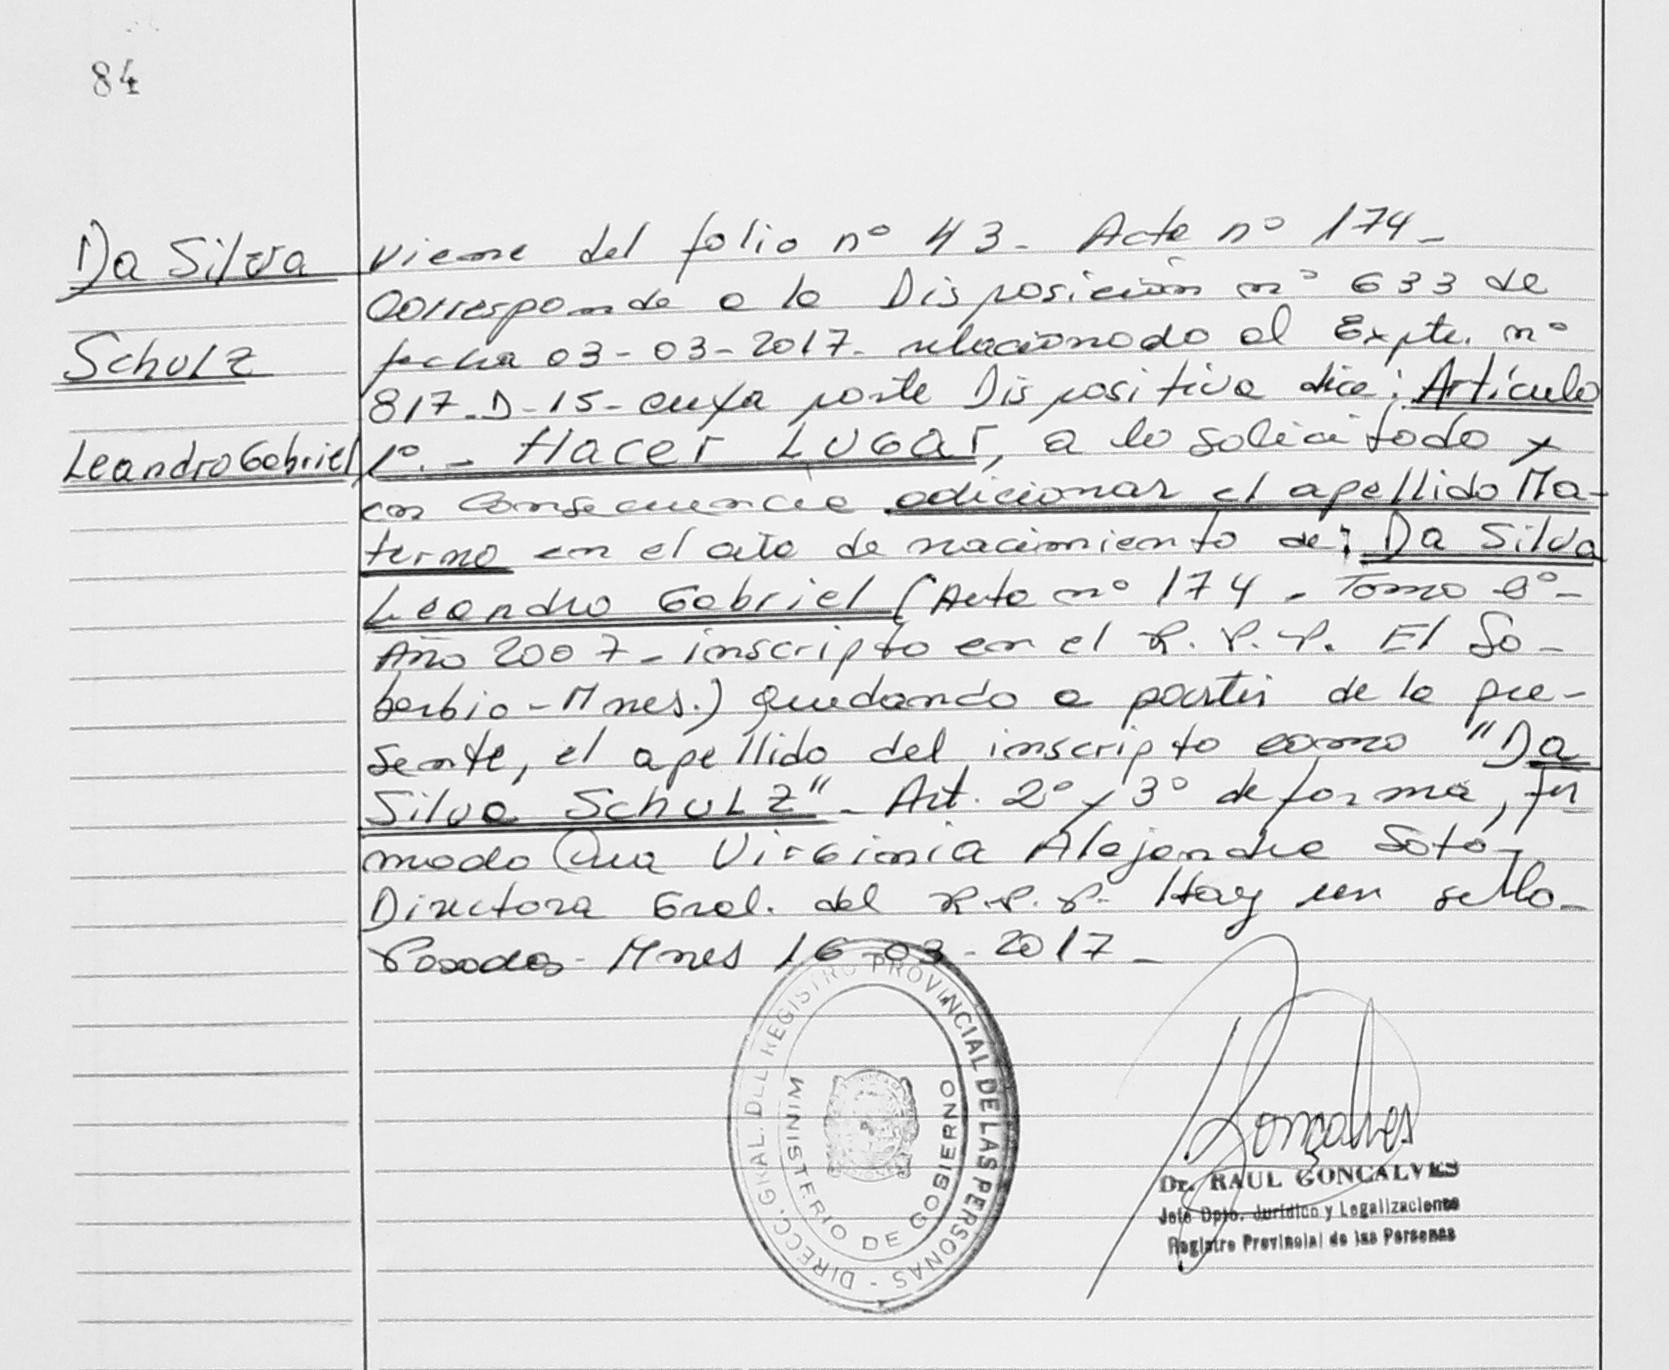 84
Da Silva
Schulz
Leandro Gabriel
Viene del folio nº 43 - Acta nº 174 -
Corresponde a la Disposición nº 633 de
fecha 03-03-2017 - relacionado al Expte. nº
817-D-15- cuya parte Dispositiva dice: Artículo
1º. - Hacer Lugar, a lo solicitado y
en consecuencia adicionar el apellido Ma-
terno en el acta de nacimiento de: Da Silva
Leandro Gabriel (Acta nº 174 - Tomo
Año 2007 - inscripto en el R. P. P. El So-
berbio - Mnes.) quedando a partir de la pre-
sente, el apellido del inscripto como "Da
Silva Schulz" - Art. 2º y 3º de forma, fir
mado Virginia Alejandra Soto -
Directora Gral. del R.P.P. Hay un sello -
Posadas - Mnes 16-03-2017 -
DIRECC. GRAL. DEL REGISTRO PROVINCIAL DE LAS PERSONAS -
MINISTERIO DE GOBIERNO
Goncalves
Dr. RAUL GONCALVES
Jefe Dpto. Jurídico y Legalizaciones
Registro Provincial de las Personas